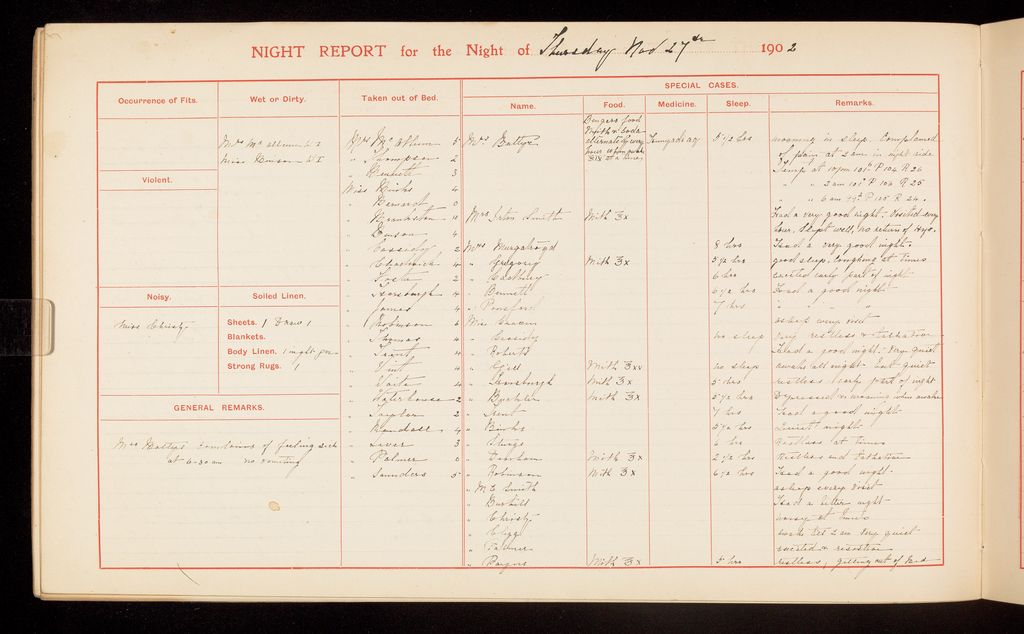 NIGHT REPORT for the Night of Thursday Nov 27th 1902
SPECIAL CASES.
Occurrence of Fits.
Wet or Dirty.
Taken out of Bed.
Name.
Food.
Medicine.
Sleep.
Remarks.
Miss W I
Mrs
Thompson 2
" Bennett 3
Miss Binks 4
0
10
" 4
" Cassidy 2
" Chadwick 4
2
" Horsburgh 4
" James 4
" Robinson 6
" Thomas 4
" Trinity 4
" Vint 4
4
" Waterhouse 2
" Taylor 2
" Randall 4
" Liver 3
" Palmer 0
" Saunders 5
Violent.
Noisy.
Miss Christy
Soiled Linen.
Sheets. 1 Draw 1
Blankets.
Body Linen. 1 night
Strong Rugs. 1
GENERAL REMARKS.
Mrs complains of feeling sick
at 6-30 am no vomiting
Mrs
Bengers food
Milk & Soda
alternately every
hour
5 1/2 hrs
moaning in sleep. Complained
of pain at 2 am in right side
Temp at 10 pm 101 P 104 R 26
" " 2 am 101 P 106 R 25
" " 6 am R 24.
Mrs Irton Smith
Milk 3x
Had a very good night. Visited every
hour. Slept well, no return of
Mrs Murgatroyd
8 hrs
Had a very good night.
" Gregory
Milk 3x
5 1/2 hrs
good sleep, Coughing at times
6 hrs
excited early part of night
" Bennett
6 1/2 hrs
Had a good night
" Ponsford
7 hrs
" "
Miss
asleep every visit
" Cassidy
no sleep
very restless &
" Roberts
Had a good night. Very quiet
" Gill
Milk 3xx
no sleep
awake all night but quiet
" Horsburgh
Milk 3x
5 hrs
restless early part of night
Milk 3x
5 1/2 hrs
Depressed & moaning when awake
" Trent
7 hrs
Had a good night
" Binks
5 1/2 hrs
Quiet night
" Sturge
6 hrs
Restless at times
Milk 3x
2 1/2 hrs
Restless and
" Robinson
Milk 3x
6 1/2 hrs
Had a good night.
" M E Smith
asleep every visit
Had a better night
" Christy
noisy at times
" Clegg
awake till 2 am Very quiet
" Palmer
excited &
Milk 3x
5 hrs
restless, getting out of bed